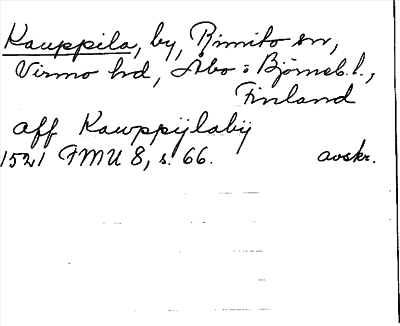 Kauppila, by, Rimito sn,
Virmo hd, Åbo = Björneb. l.,
Finland
aff Kawppijlabij
1521 FMU 8, s. 66. avskr.